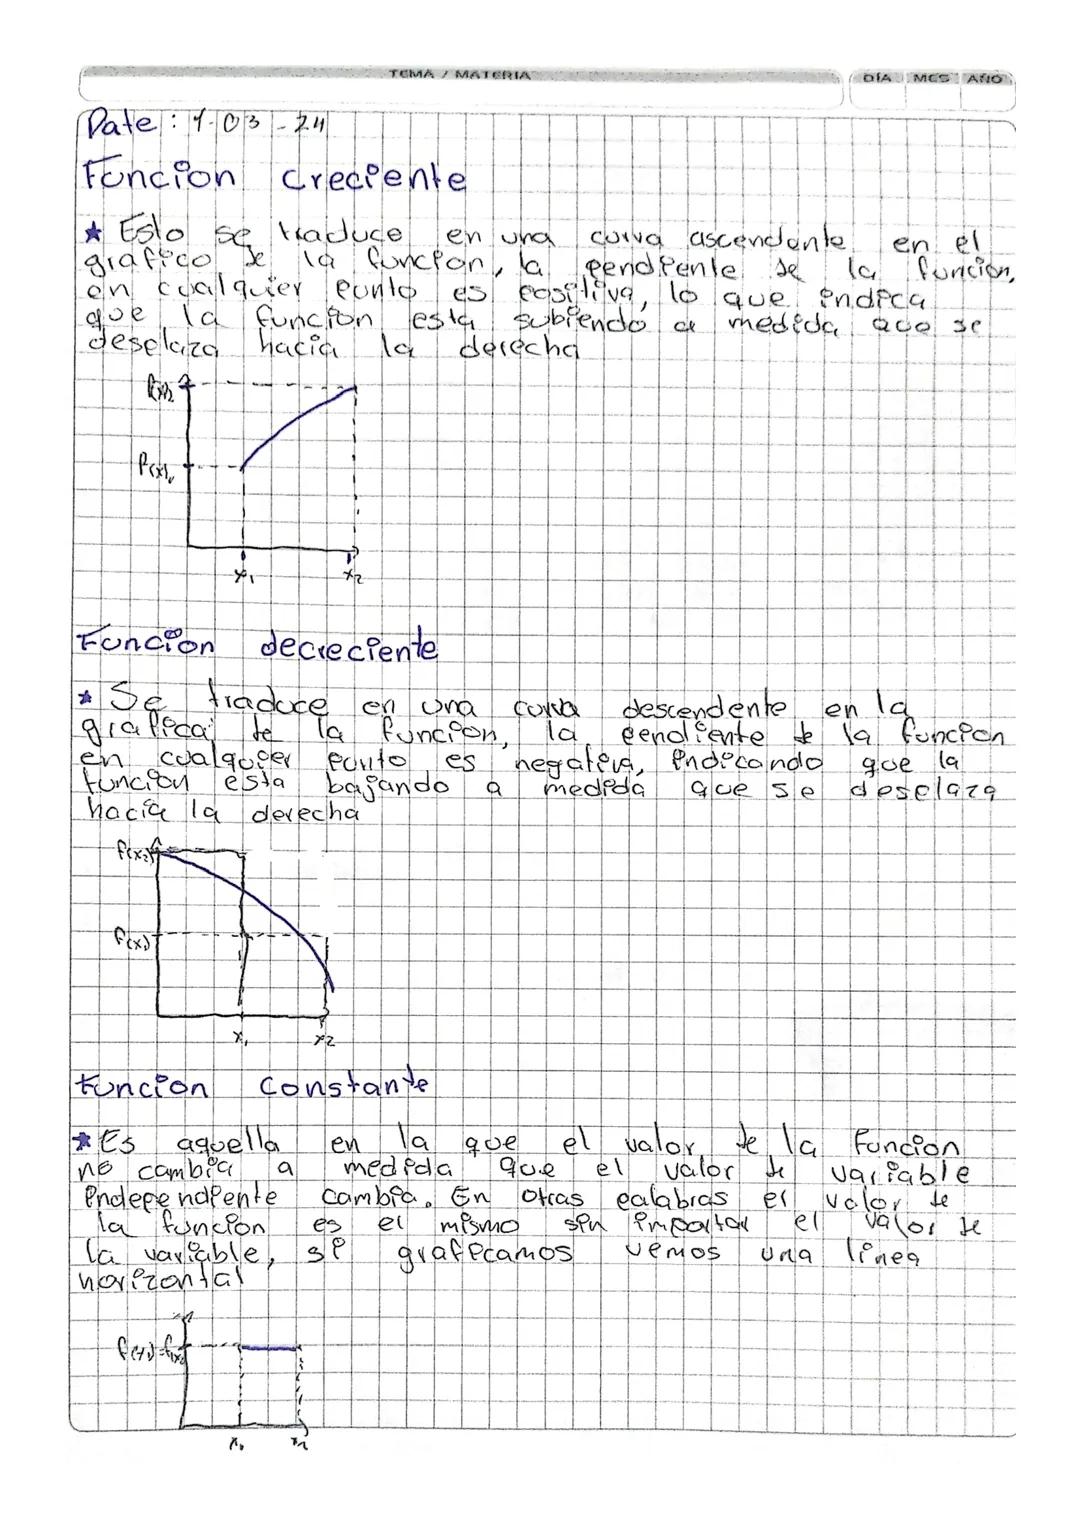 TEMA / MATERIA
DÍA MES AÑO
Date: 1-03-24
Funcion creciente
★ Esto se traduce en una curva ascendente en el
grafico de la funcion, la pendiente de la funcion,
en cualquier punto es positiva, lo que indica
que la funcion esta subiendo a medida que se
desplaza hacia la derecha
f(x)₂
f(x)₁
x₁ x₂
Funcion decreciente
★ Se traduce en una curva descendente en la
grafica de la funcion, la pendiente de la funcion
en cualquier punto es negativa, indicando que la
funcion esta bajando a medida que se desplaza
hacia la derecha
f(x₂)
f(x)
x₁ x₂
Funcion constante
★ Es aquella en la que el valor de la funcion
no cambia a medida que el valor de variable
independiente cambia. En otras palabras el valor de
la funcion es el mismo sin importar el valor de
la variable, si graficamos vemos una linea
horizontal
x₁ x₂